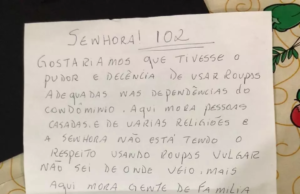 SENHORA! 102
GOSTARIAMOS QUE TIVESSE O
PUDOR E DECÊNCIA DE USAR ROUPAS
ADEQUADAS NAS DEPENDÊNCIAS DO
CONDOMINIO. AQUI MORA PESSOAS
CASADAS, E DE VARIAS RELIGIÕES E
A SENHORA NÃO ESTÁ TENDO O
RESPEITO USANDO ROUPAS VULGAR
NÃO SEI DE ONDE VEIO. MAIS
AQUI MORA GENTE DE FAMILIA